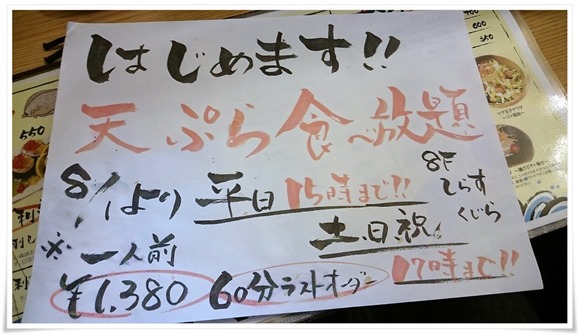 はじめます!!
天ぷら食べ放題
8/1より 平日15時まで!!
8F
てらす
くじら
土.日.祝.
17時まで!!
※一人前
¥1,380 60分ラストオーダー
550
700
600
350